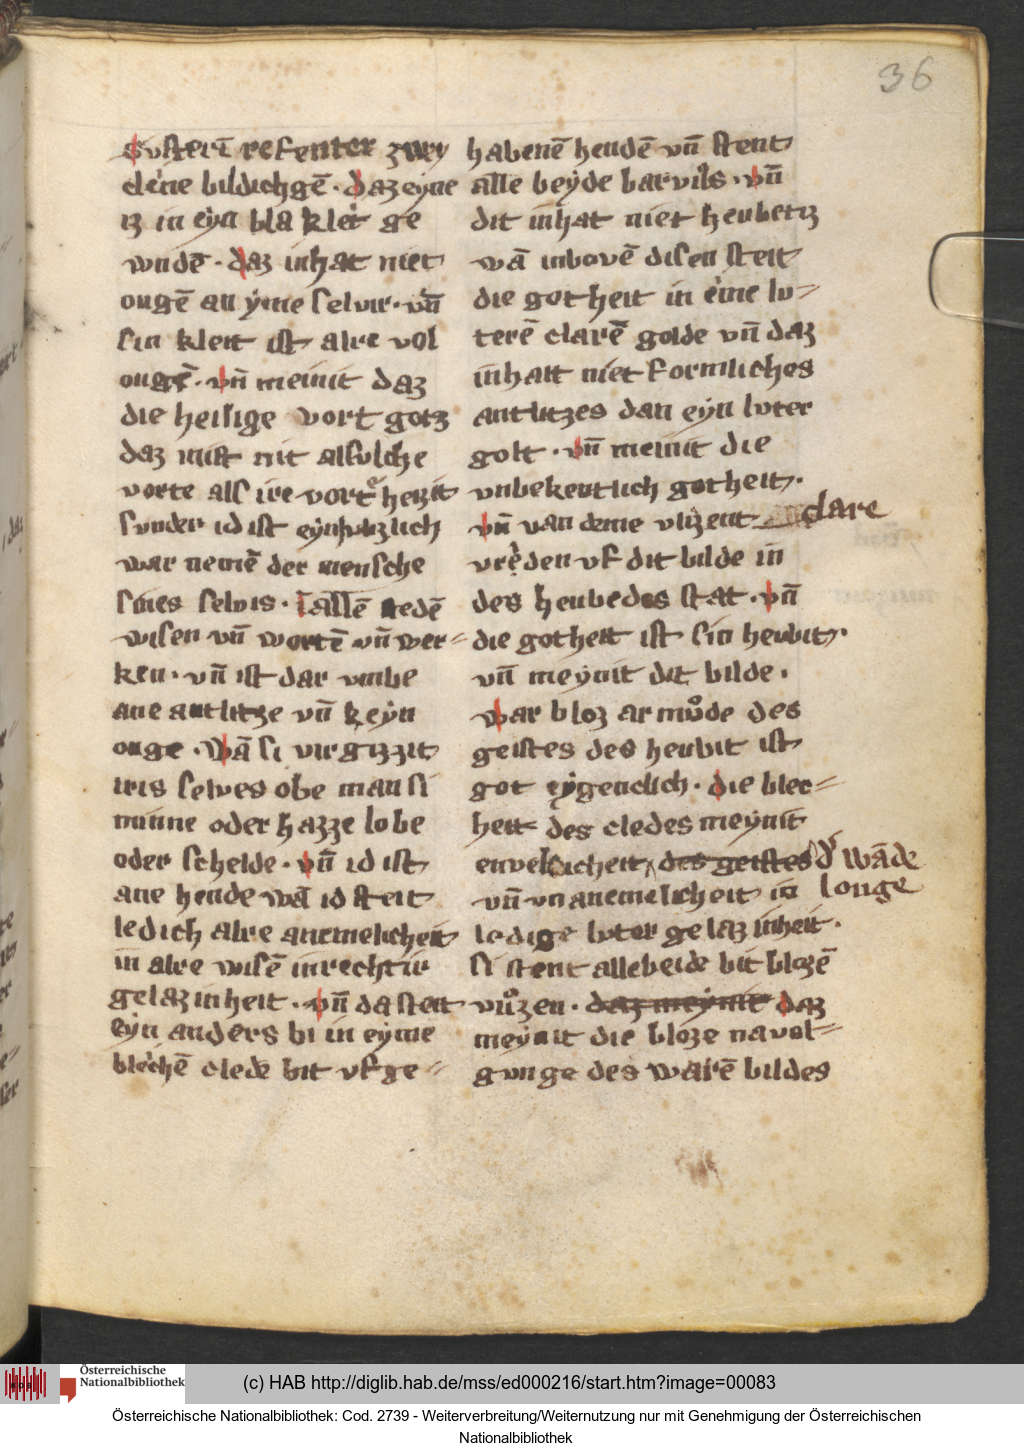 36
susterī refenter zwey
cleīne bildichgē · daz eyne
iz in eyn bla kleit ge
wndē · daz inhat niet
ougē an ẏme selvir · vn̄
sin kleit ist alre vol
ougē · vn̄ meinit daz
die heilige vort gotz
daz inist nit alsulche
vorte als ire vort herzit
sunder id ist eẏnhirzlich
war nemē der mensche
sines selvis · ī allē redē
wisen vn̄ wortē vn̄ wer-
ken · vn̄ ist dar vmbe
ane antlitze vn̄ keẏn
ouge · Wā si virgizzit
iris selves obe man si
minne oder hazze lobe
oder schelde · vn̄ id ist
ane hende wā id steit
ledich alre anemelicheit
in alre wisē inrechtir
gelazinheit · vn̄ da steit
eẏn anders bi in eẏme
blechē clede bit vfge-
habenē hendē vn̄ stent
alle beẏde barvůs · vn̄
dit inhat niet heubetiz
wā inbovē disen steit
die gotheit in eine lu-
terē clarē golde vn̄ daz
inhait niet formliches
antlitzes dan eẏn luter
golt · vn̄ meinit die
vnbekentlich gotheit.
vn̄ van deme vlizent clare
vreden vf dit bilde in
des heubedes stat · vn̄
die gotheit ist sin heubit.
vn̄ meẏnit dit bilde .
War bloz armůde des
geistes des heubit ist
got eẏgenclich · die blec-
heit des cledes meẏnit
envelsicheit des geistes d' wāde
vn̄ vnanemelicheit in longe
ledige luter gelazinheit .
si stent allebeide bit blozē
vůzen · daz meẏnit daz
meẏnit die bloze navol-
gunge des warē bildes
Österreichische
Nationalbibliothek
(c) HAB http://diglib.hab.de/mss/ed000216/start.htm?image=00083
Österreichische Nationalbibliothek: Cod. 2739 - Weiterverbreitung/Weiternutzung nur mit Genehmigung der Österreichischen
Nationalbibliothek